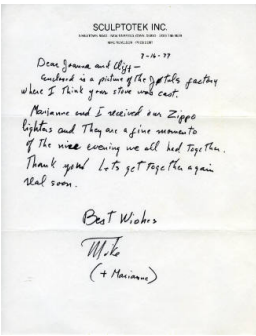 SCULPTOTEK INC.
Dear Joanna and Cliff -
Enclosed is a picture of the Jøtul factory
where I think your stove was cast.
Marianne and I received our Zippo
lighters and They are a fine momento
of the nice evening we all had Together.
Thank you! Lets get Together again
real soon.
Best Wishes
Mike
(+ Marianne)